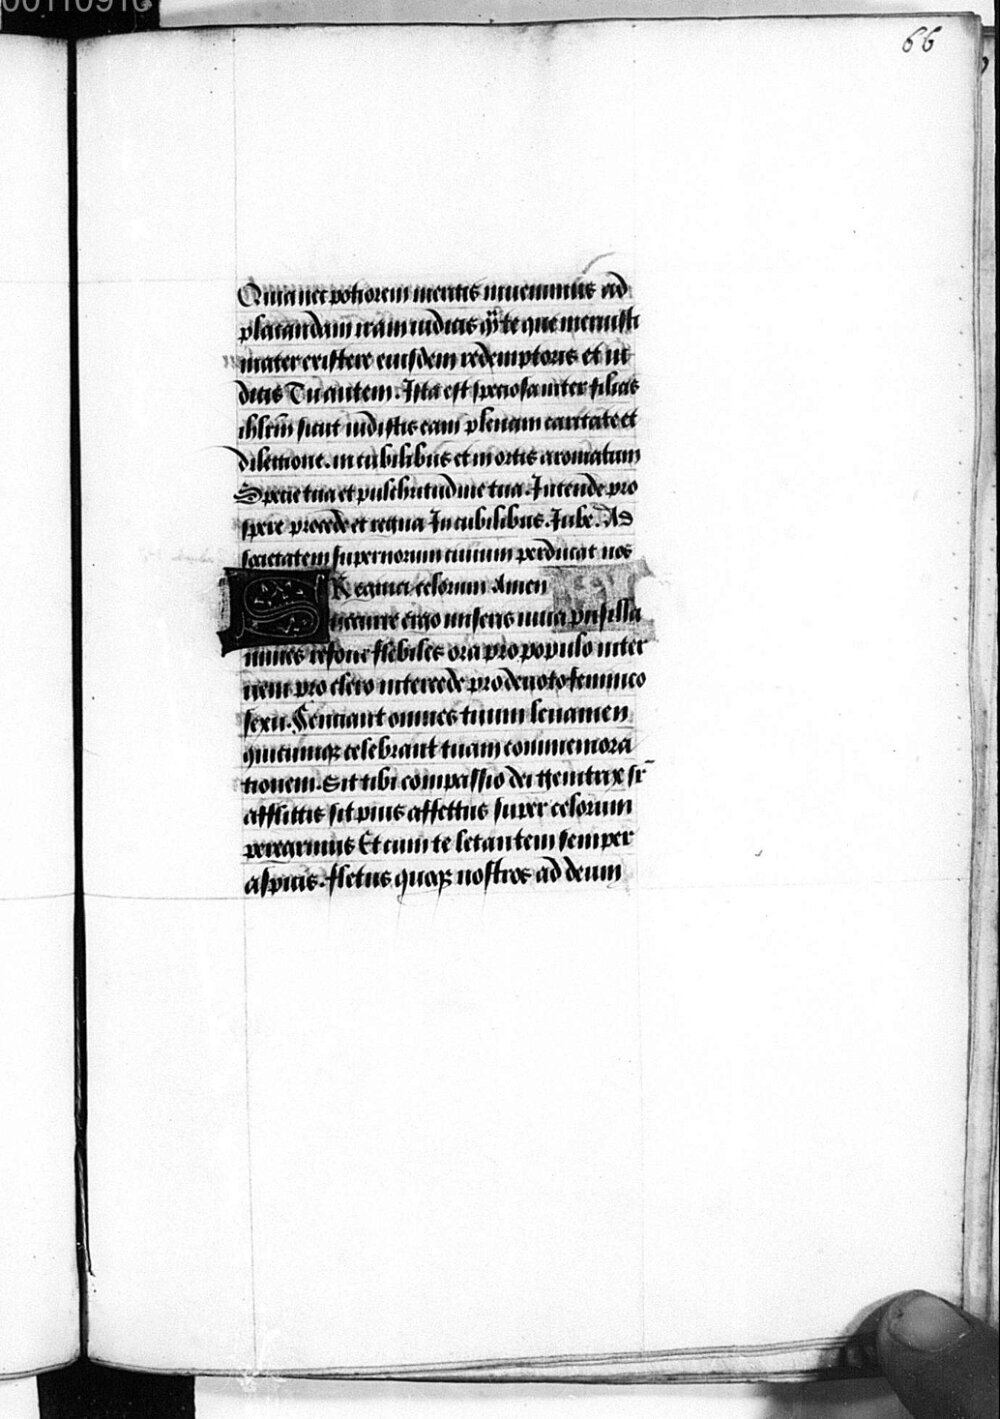 66
Quia nec potiorem meritis inuenimus ad
placandam iram iudicis q̄ te que meruisti
mater existere eiusdem redemptoris et iu
dicis Tu autem. Ista est speciosa inter filias
ihrl̄m sicut uidistis eam plenam caritate et
dilectione. in cubilibus et in ortis aromatum
Specie tua et pulchritudine tua. Intende pro
spere procede et regna In cubilibus. Iube. Ad
societatem supernorum ciuium perducat nos
Regina celorum Amen
Succurre ergo miseris iuua pusilla
nimes refoue flebiles ora pro populo inter
ueni pro clero intercede pro deuoto femineo
sexu. Senciant omnes tuum leuamen
quicunq̢ celebrant tuam commemora
tionem. Sit tibi compassio dei genitrix sr̄
afflictis sit pius affectus super celorum
peregrinus Et cum te letantem semper
aspicis. fletus quoq̢ nostros ad deum